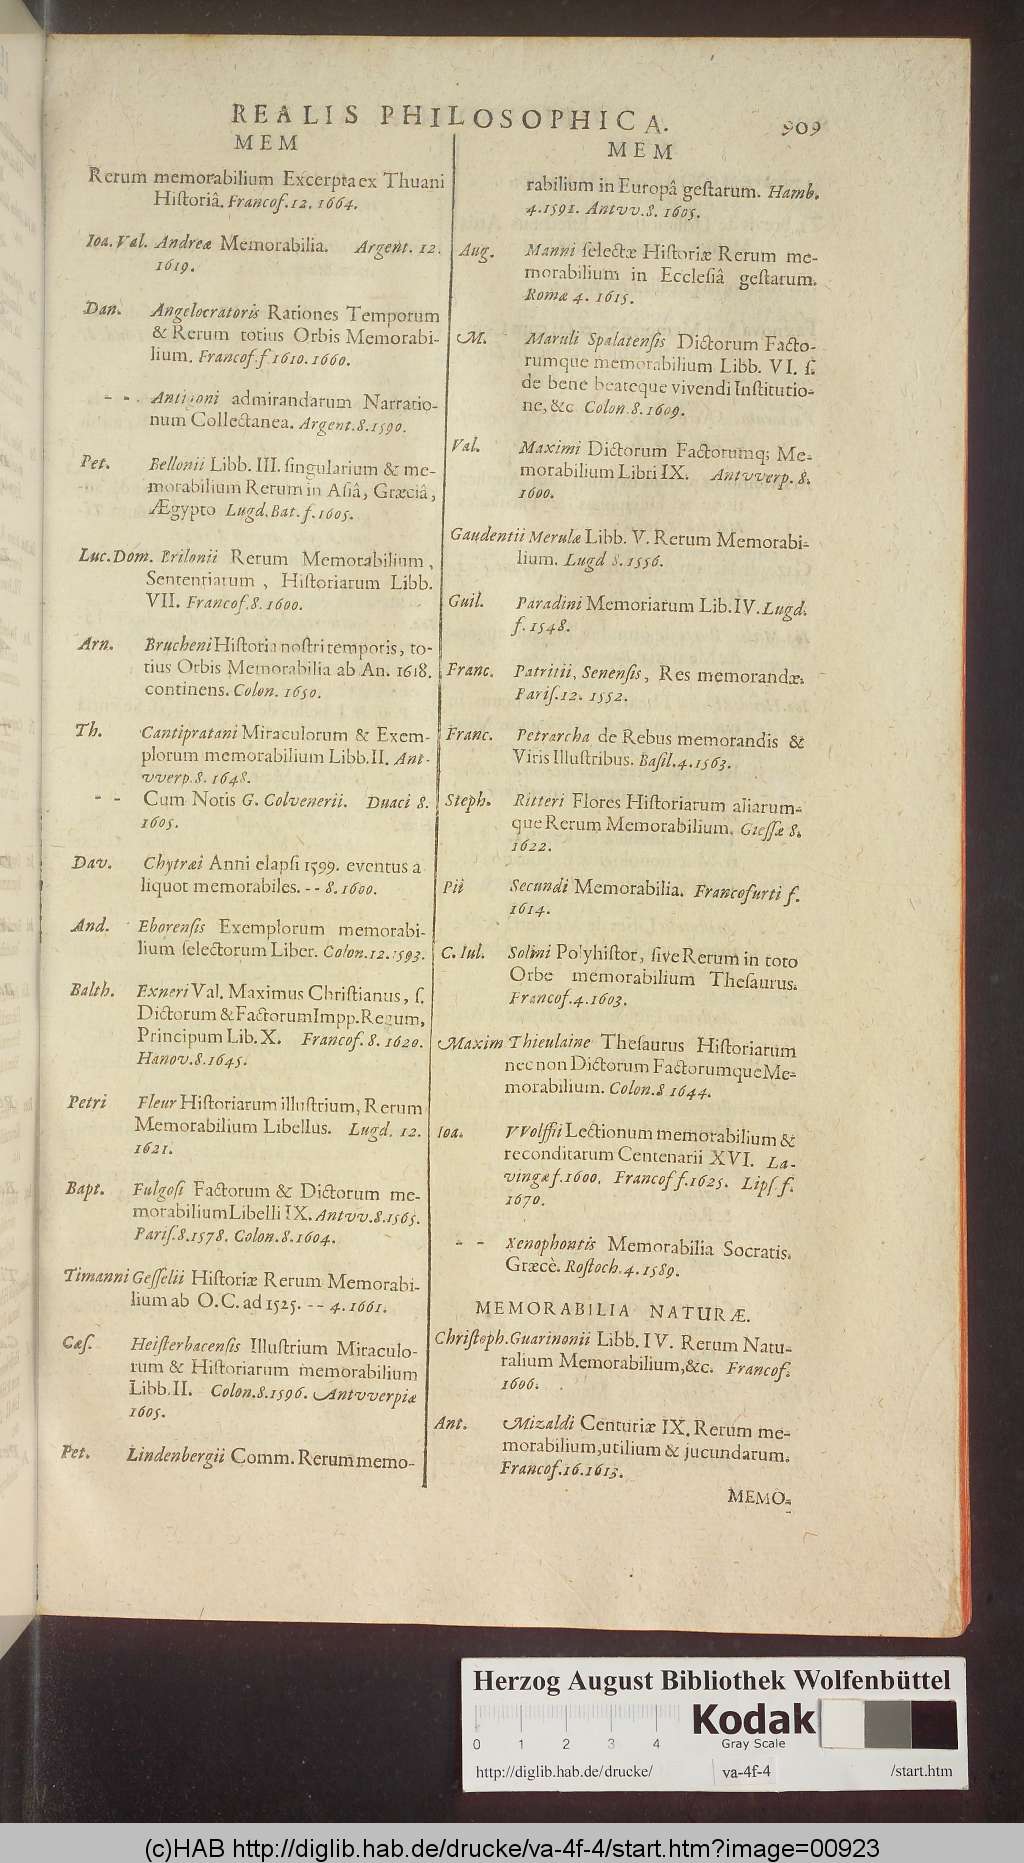 REALIS PHILOSOPHICA. 909
MEM
Rerum memorabilium Excerpta ex Thuani
Hiſtoriâ. Francof. 12. 1664.
Ioa. Val. Andreæ Memorabilia. Argent. 12.
1619.
Dan. Angelocratoris Rationes Temporum
& Rerum totius Orbis Memorabi-
lium. Francof. f 1610. 1660.
- - . Antigoni admirandarum Narratio-
num Collectanea. Argent. 8. 1590.
Pet. Bellonii Libb. III. ſingularium & me-
morabilium Rerum in Aſiâ, Græciâ,
Ægypto Lugd. Bat. f. 1605.
Luc. Dom. Brilonii Rerum Memorabilium,
Sententiarum, Hiſtoriarum Libb.
VII. Francof. 8. 1600.
Arn. Brucheni Hiſtoria noſtri temporis, to-
tius Orbis Memorabilia ab An. 1618.
continens. Colon. 1650.
Th. Cantipratani Miraculorum & Exem-
plorum memorabilium Libb. II. Ant-
vverp. 8. 1648.
- - Cum Notis G. Colvenerii. Duaci 8.
1605.
Dav. Chytræi Anni elapſi 1599. eventus a
liquot memorabiles. - - 8. 1600.
And. Eborenſis Exemplorum memorabi-
lium ſelectorum Liber. Colon. 12. 1593.
Balth. Exneri Val. Maximus Chriſtianus, ſ.
Dictorum & Factorum Impp. Regum,
Principum Lib. X. Francof. 8. 1620.
Hanov. 8. 1645.
Petri Fleur Hiſtoriarum illuſtrium, Rerum
Memorabilium Libellus. Lugd. 12.
1621.
Bapt. Fulgoſi Factorum & Dictorum me-
morabilium Libelli IX. Antvv. 8. 1565.
Pariſ. 8. 1578. Colon. 8. 1604.
Timanni Geſſelii Hiſtoriæ Rerum Memorabi-
lium ab O. C. ad 1525. - - 4. 1661.
Cæſ. Heiſterbacenſis Illuſtrium Miraculo-
rum & Hiſtoriarum memorabilium
Libb. II. Colon. 8. 1596. Antvverpiæ
1605.
Pet. Lindenbergii Comm. Rerum memo-
MEM
rabilium in Europâ geſtarum. Hamb.
4. 1591. Antvv. 8. 1605.
Aug. Manni ſelectæ Hiſtoriæ Rerum me-
morabilium in Eccleſiâ geſtarum.
Romæ 4. 1615.
M. Maruli Spalatenſis Dictorum Facto-
rumque memorabilium Libb. VI. ſ.
de bene beateque vivendi Inſtitutio-
ne, &c Colon. 8. 1609.
Val. Maximi Dictorum Factorumq; Me-
morabilium Libri IX. Antvverp. 8.
1600.
Gaudentii Merulæ Libb. V. Rerum Memorabi-
lium. Lugd 8. 1556.
Guil. Paradini Memoriarum Lib. IV. Lugd.
f. 1548.
Franc. Patritii, Senenſis, Res memorandæ.
Pariſ. 12. 1552.
Franc. Petrarcha de Rebus memorandis &
Viris Illuſtribus. Baſil. 4. 1563.
Steph. Ritteri Flores Hiſtoriarum aliarum-
que Rerum Memorabilium. Gieſſæ 8.
1622.
Pii Secundi Memorabilia. Francofurti f.
1614.
C. Iul. Solini Polyhiſtor, ſive Rerum in toto
Orbe memorabilium Theſaurus.
Francof. 4. 1603.
Maxim Thieulaine Theſaurus Hiſtoriarum
nec non Dictorum Factorumque Me-
morabilium. Colon. 8 1644.
Ioa. VVolffii Lectionum memorabilium &
reconditarum Centenarii XVI. La-
vingæ f. 1600. Francof f. 1625. Lipſ f.
1670.
- - Xenophontis Memorabilia Socratis.
Græcè. Roſtoch. 4. 1589.
MEMORABILIA NATURÆ.
Chriſtoph. Guarinonii Libb. IV. Rerum Natu-
ralium Memorabilium, &c. Francof.
1606.
Ant. Mizaldi Centuriæ IX. Rerum me-
morabilium, utilium & jucundarum.
Francof. 16. 1613.
MEMO-
Herzog August Bibliothek Wolfenbüttel
0 1 2 3 4
Kodak
Gray Scale
http://diglib.hab.de/drucke/ va-4f-4 /start.htm
(c)HAB http://diglib.hab.de/drucke/va-4f-4/start.htm?image=00923